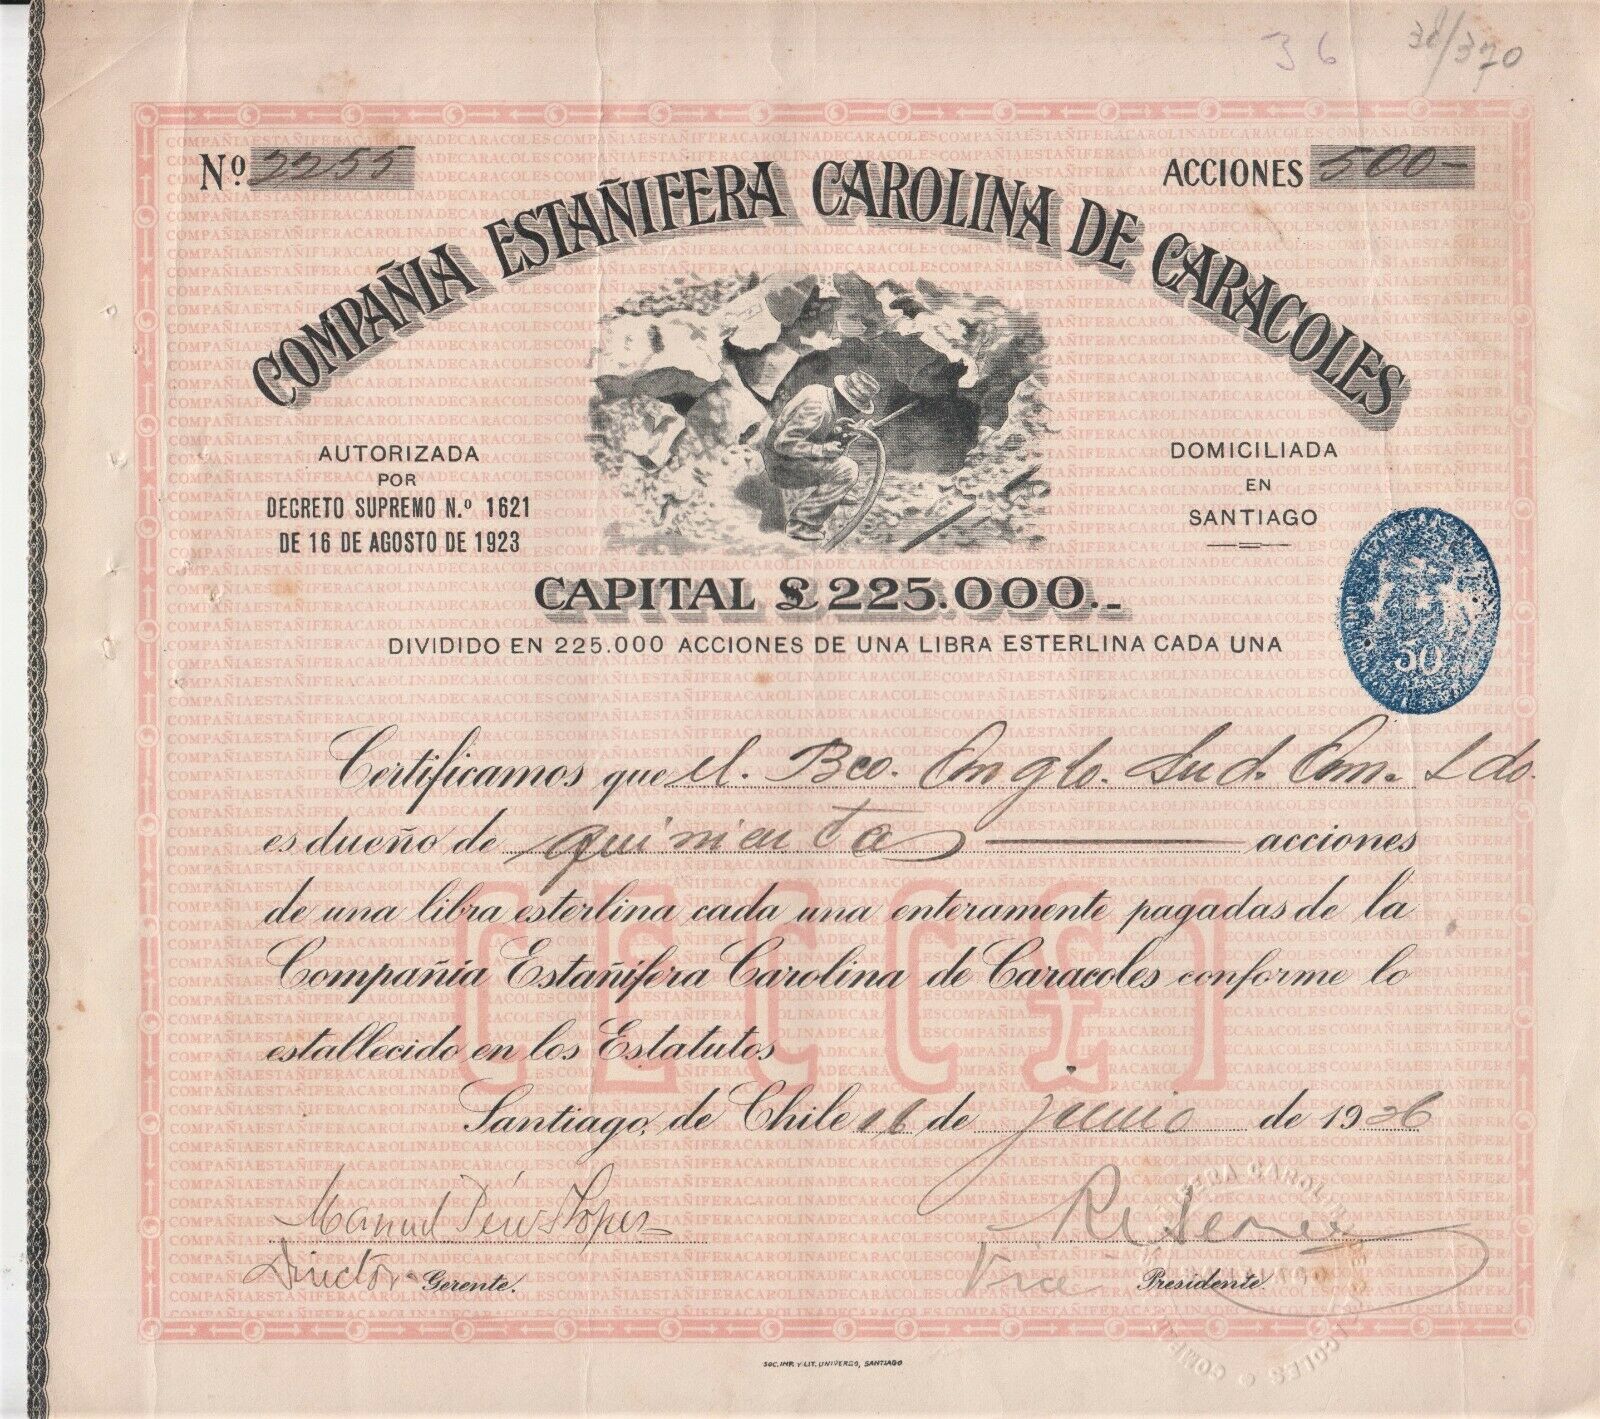 36 38/370
Nº 2255
ACCIONES 500-
COMPAÑIA ESTAÑIFERA CAROLINA DE CARACOLES
AUTORIZADA
POR
DECRETO SUPREMO N.º 1621
DE 16 DE AGOSTO DE 1923
DOMICILIADA
EN
SANTIAGO
50
CAPITAL £ 225.000.-
DIVIDIDO EN 225.000 ACCIONES DE UNA LIBRA ESTERLINA CADA UNA
Certificamos que el. Bco. Anglo. Sud. Am. Ldo.
es dueño de quinientas acciones
de una libra esterlina cada una enteramente pagadas de la
Compañia Estañifera Carolina de Caracoles conforme lo
establecido en los Estatutos
CECC£1
Santiago, de Chile 16 de junio de 1926
Manuel
Director Gerente.
Vice Presidente.
SOC. IMP. Y LIT. UNIVERSO, SANTIAGO